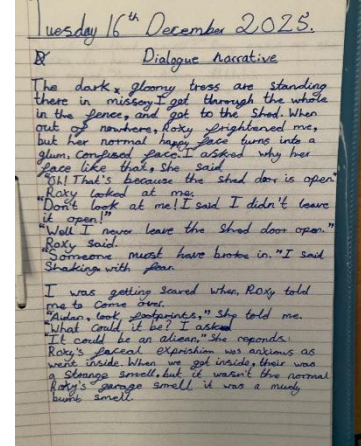 Tuesday 16th December 2025.
Dialogue narrative
The dark, gloomy tress are standing
there in missery I got through the whole
in the fence, and got to the shed. When
out of nowhere, Roxy frightened me,
but her normal happy face turns into a
glum, confised face. I asked why her
face like that, she said
"Oh! That's because the shed door is open"
Roxy looked at me.
"Don't look at me! I said I didn't leave
it open!"
"Well I never leave the shed door open."
Roxy said.
"Someone must have broke in. "I said
Shaking with fear.
I was getting scared when, Roxy told
me to come over.
"Aidan, look footprints," She told me.
"What could it be? I asked
"It could be an aliean," She reponds.
Roxy's faceal exprishion was anxious as
went inside. When we got inside, their was
a strange smell, but it wasn't the normal
Roxy's garage smell it was a mudy
burnt smell.